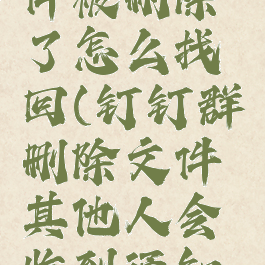 件被删除
了怎么找
回(钉钉群
删除文件
其他人会
收到通知